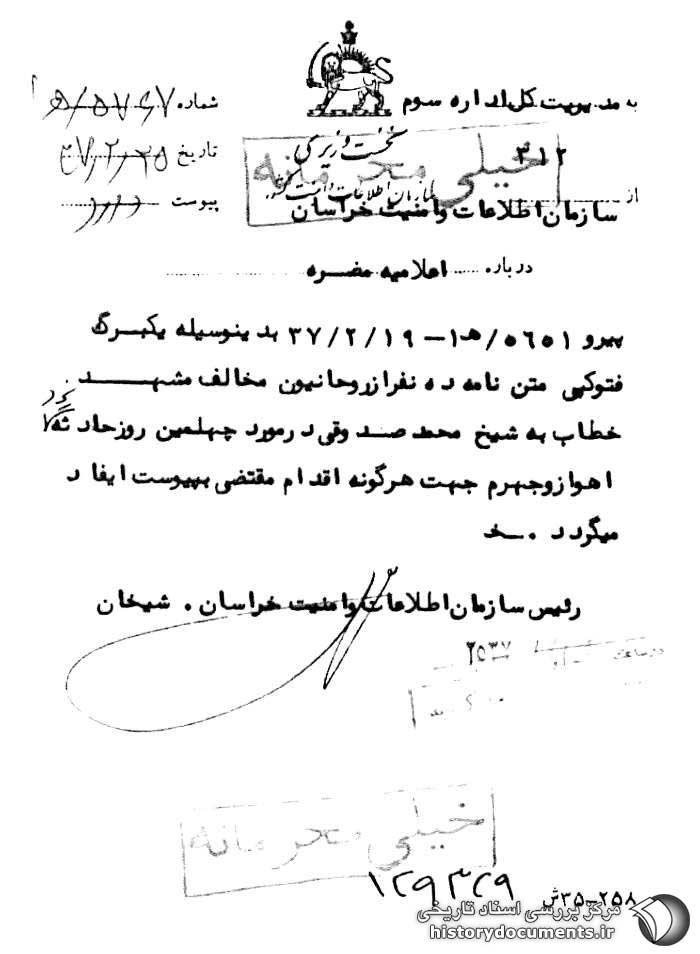 به مدیریت کل اداره سوم
۳۱۲
از
سازمان اطلاعات وامنیت خراسان
نخست وزیری
سازمان اطلاعات و امنیت کشور
خیلی محرمانه
شماره
تاریخ ۳۷/۲/۲۵
پیوست دارد
درباره اعلامیه مضره
پیرو ۵۶۵۱/ه‍۱ – ۳۷/۲/۱۹ بدینوسیله یکبرگ
فتوکپی متن نامه ده نفرازروحانیون مخالف مشهد
خطاب به شیخ محمد صدوقی درمورد چهلمین روزحادثه
اهوازوجهرم جهت هرگونه اقدام مقتضی بپیوست ایفاد
میگردد . خ
رئیس سازمان اطلاعات وامنیت خراسان . شیخان
۲۵۳۷
در ساعت
خیلی محرمانه
۱۲۹۳۲۹
۳۵-۲۵۸ش
مرکز بررسی اسناد تاریخی
historydocuments.ir